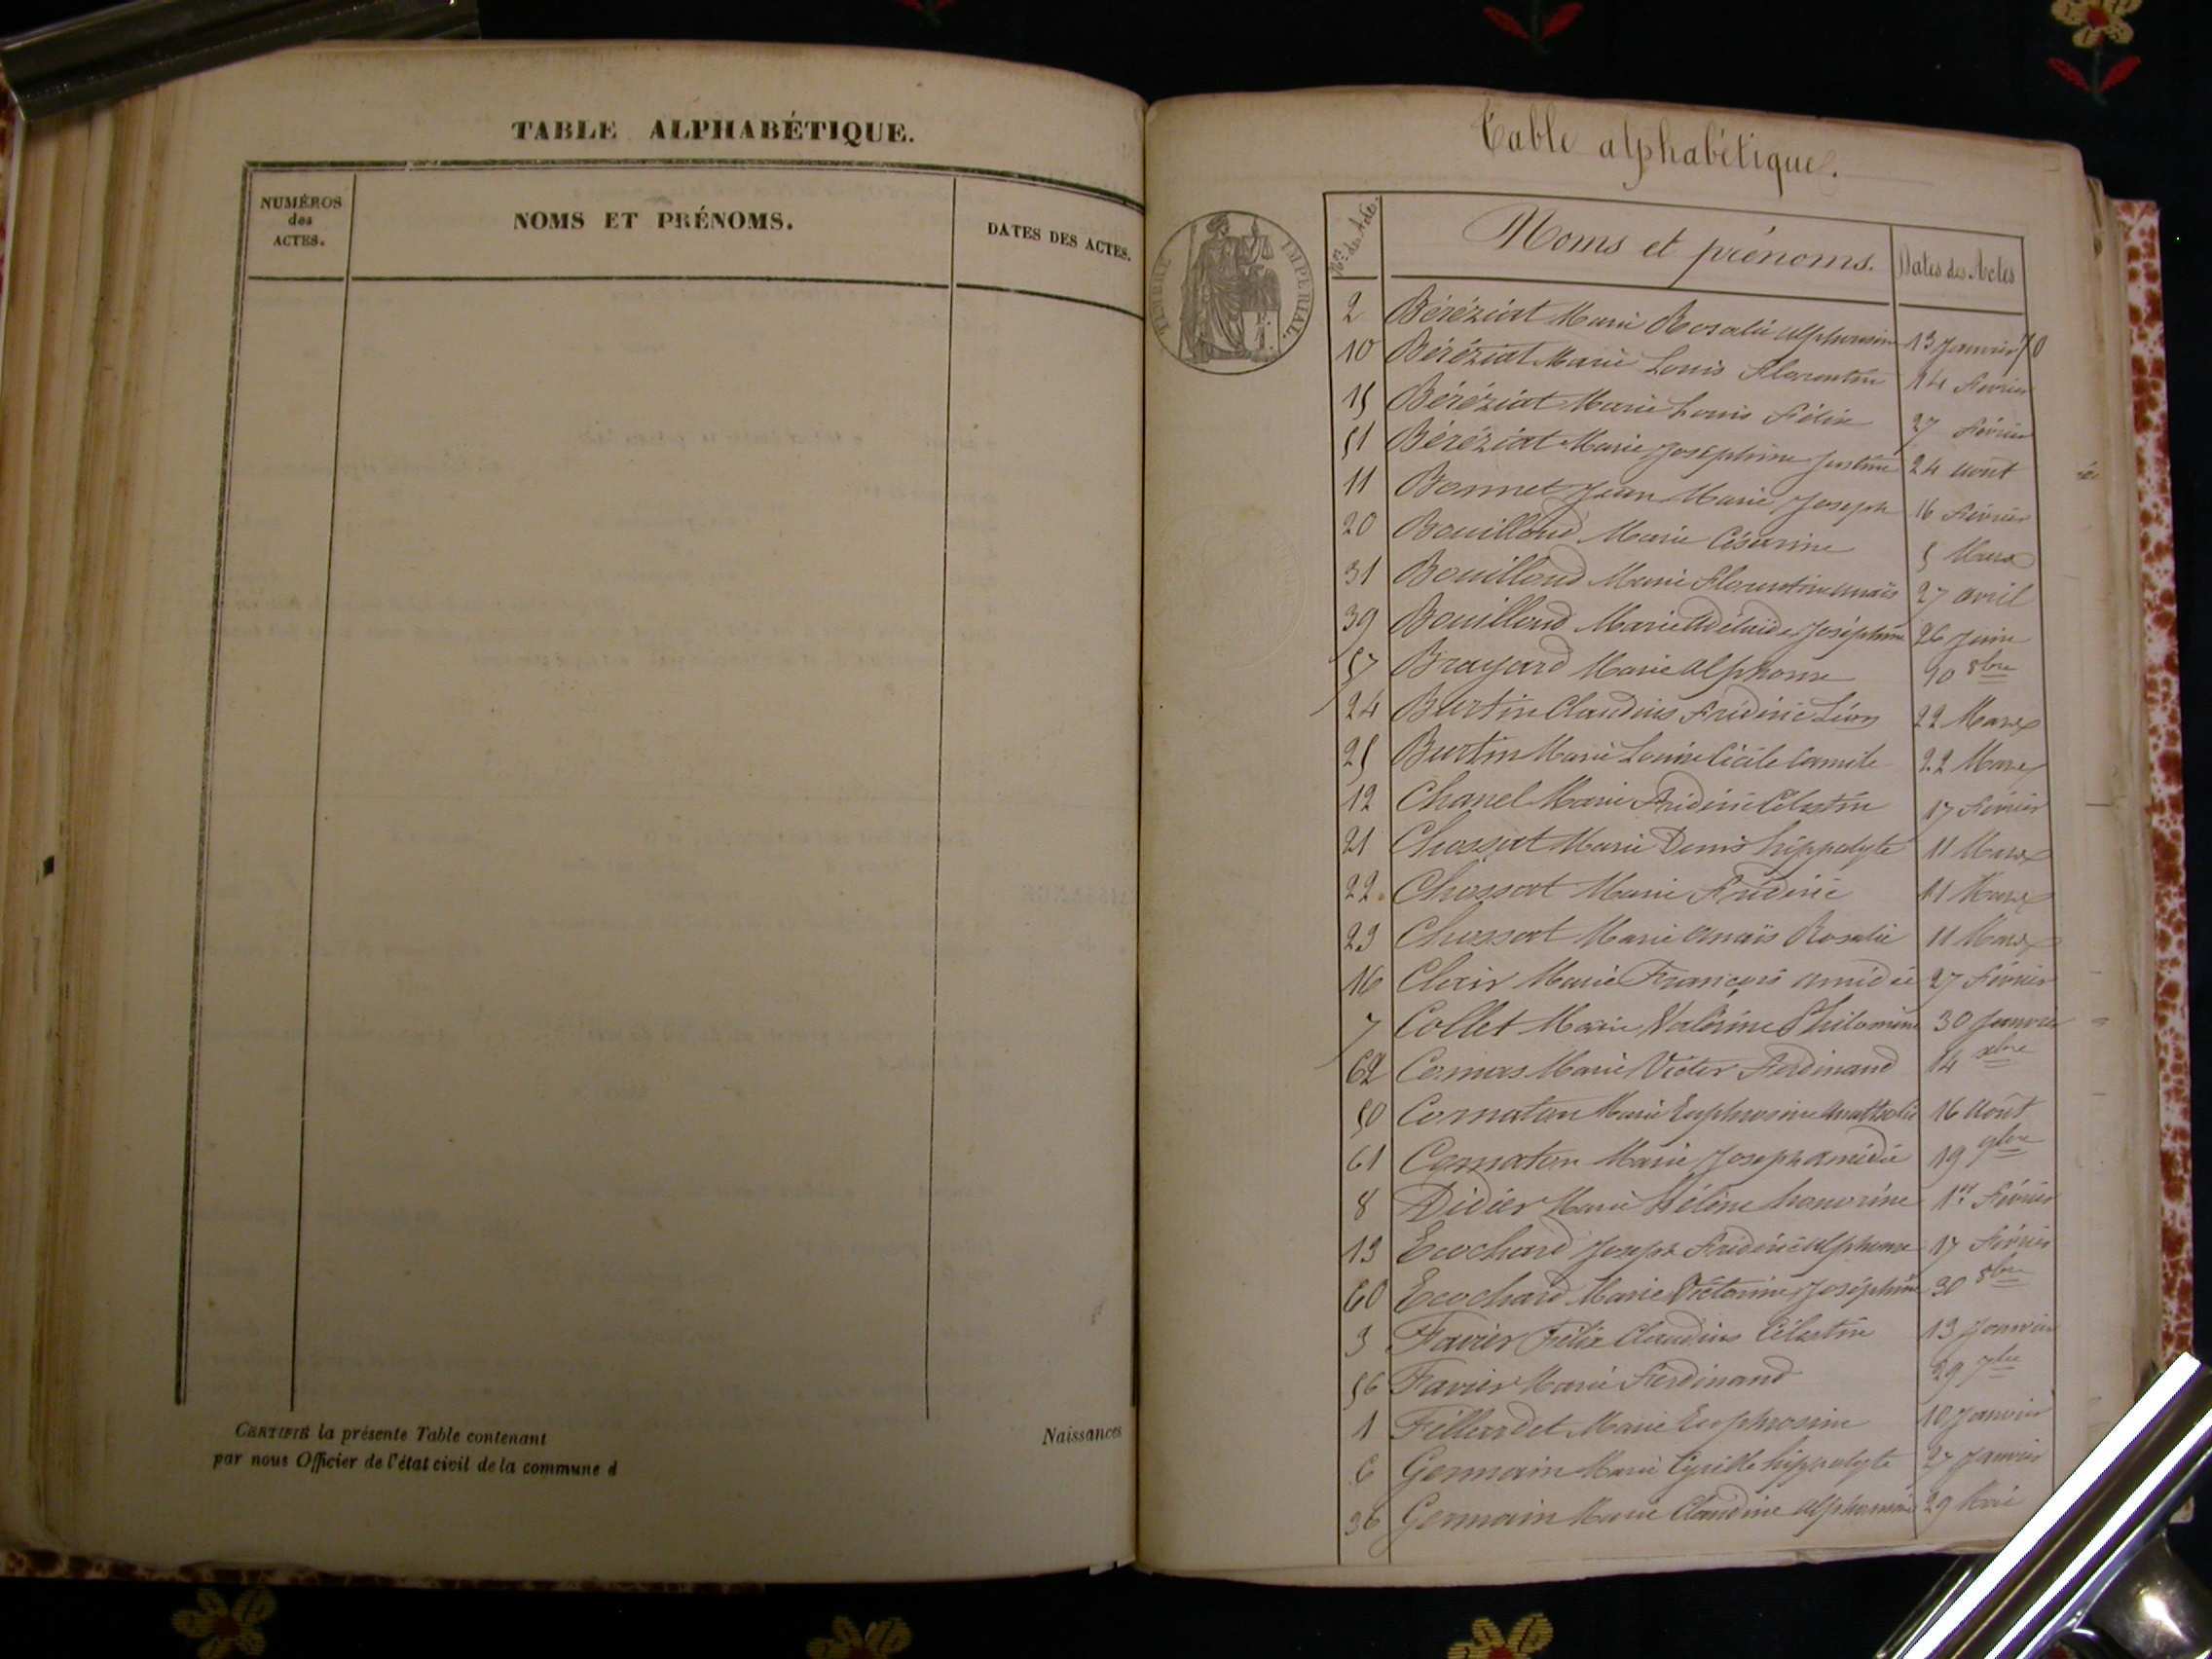 TABLE ALPHABÉTIQUE.
NUMÉROS
des
ACTES.
NOMS ET PRÉNOMS.
DATES DES ACTES.
CERTIFIÉ la présente Table contenant
Naissances
par nous Officier de l'état civil de la commune d
Table alphabétique.
TIMBRE IMPÉRIAL.
Nos des Actes. Noms et prénoms. Dates des Actes
2 Béréziat Marie Rosalie alphonsine 13 Janvier 70
10 Béréziat Marie Louis Florentin 14 Février
15 Béréziat Marie Louis Félix 27 Février
51 Béréziat Marie Joséphine Justine 24 août
11 Bonnet Jean Marie Joseph 16 Février
20 Bouilloud Marie Césarine 5 Mars
31 Bouilloud Marie Florentine anaïs 27 avril
39 Bouilloud Marie Adélaïde Joséphine 26 Juin
57 Brayard Marie alphonse 8bre
24 Burtin Claudius Frédéric Léon 22 Mars
25 Burtin Marie Louise Cécile Camile 22 Mars
12 Chanel Marie Frédéric Célestin 17 Février
21 Chossat Marie Denis hippolyte 11 Mars
22 Chossat Marie Frédéric 11 Mars
23 Chossat Marie anaïs Rosalie 11 Mars
16 Clair Marie François amédée 27 Février
7 Collet Marie Valérine Philomène 30 Janvier
62 Comas Marie Victor Ferdinand 14 xbre
50 Cornaton Marie Euphrosine 16 août
61 Cornaton Marie Joseph amédée 19 9bre
8 Didier Marie Hélène honorine 1er Février
13 Ecochard Joseph Frédéric alphonse 17 Février
60 Ecochard Marie Victorine Joséphine 30 8bre
3 Favier Félix Claudius Célestin 13 Janvier
56 Favier Marie Ferdinand 29 7bre
1 Fillardet Marie Euphrosine 10 Janvier
6 Germain Marie Cyrille hippolyte 27 Janvier
36 Germain Marie Claudine alphonsine 29 Mai